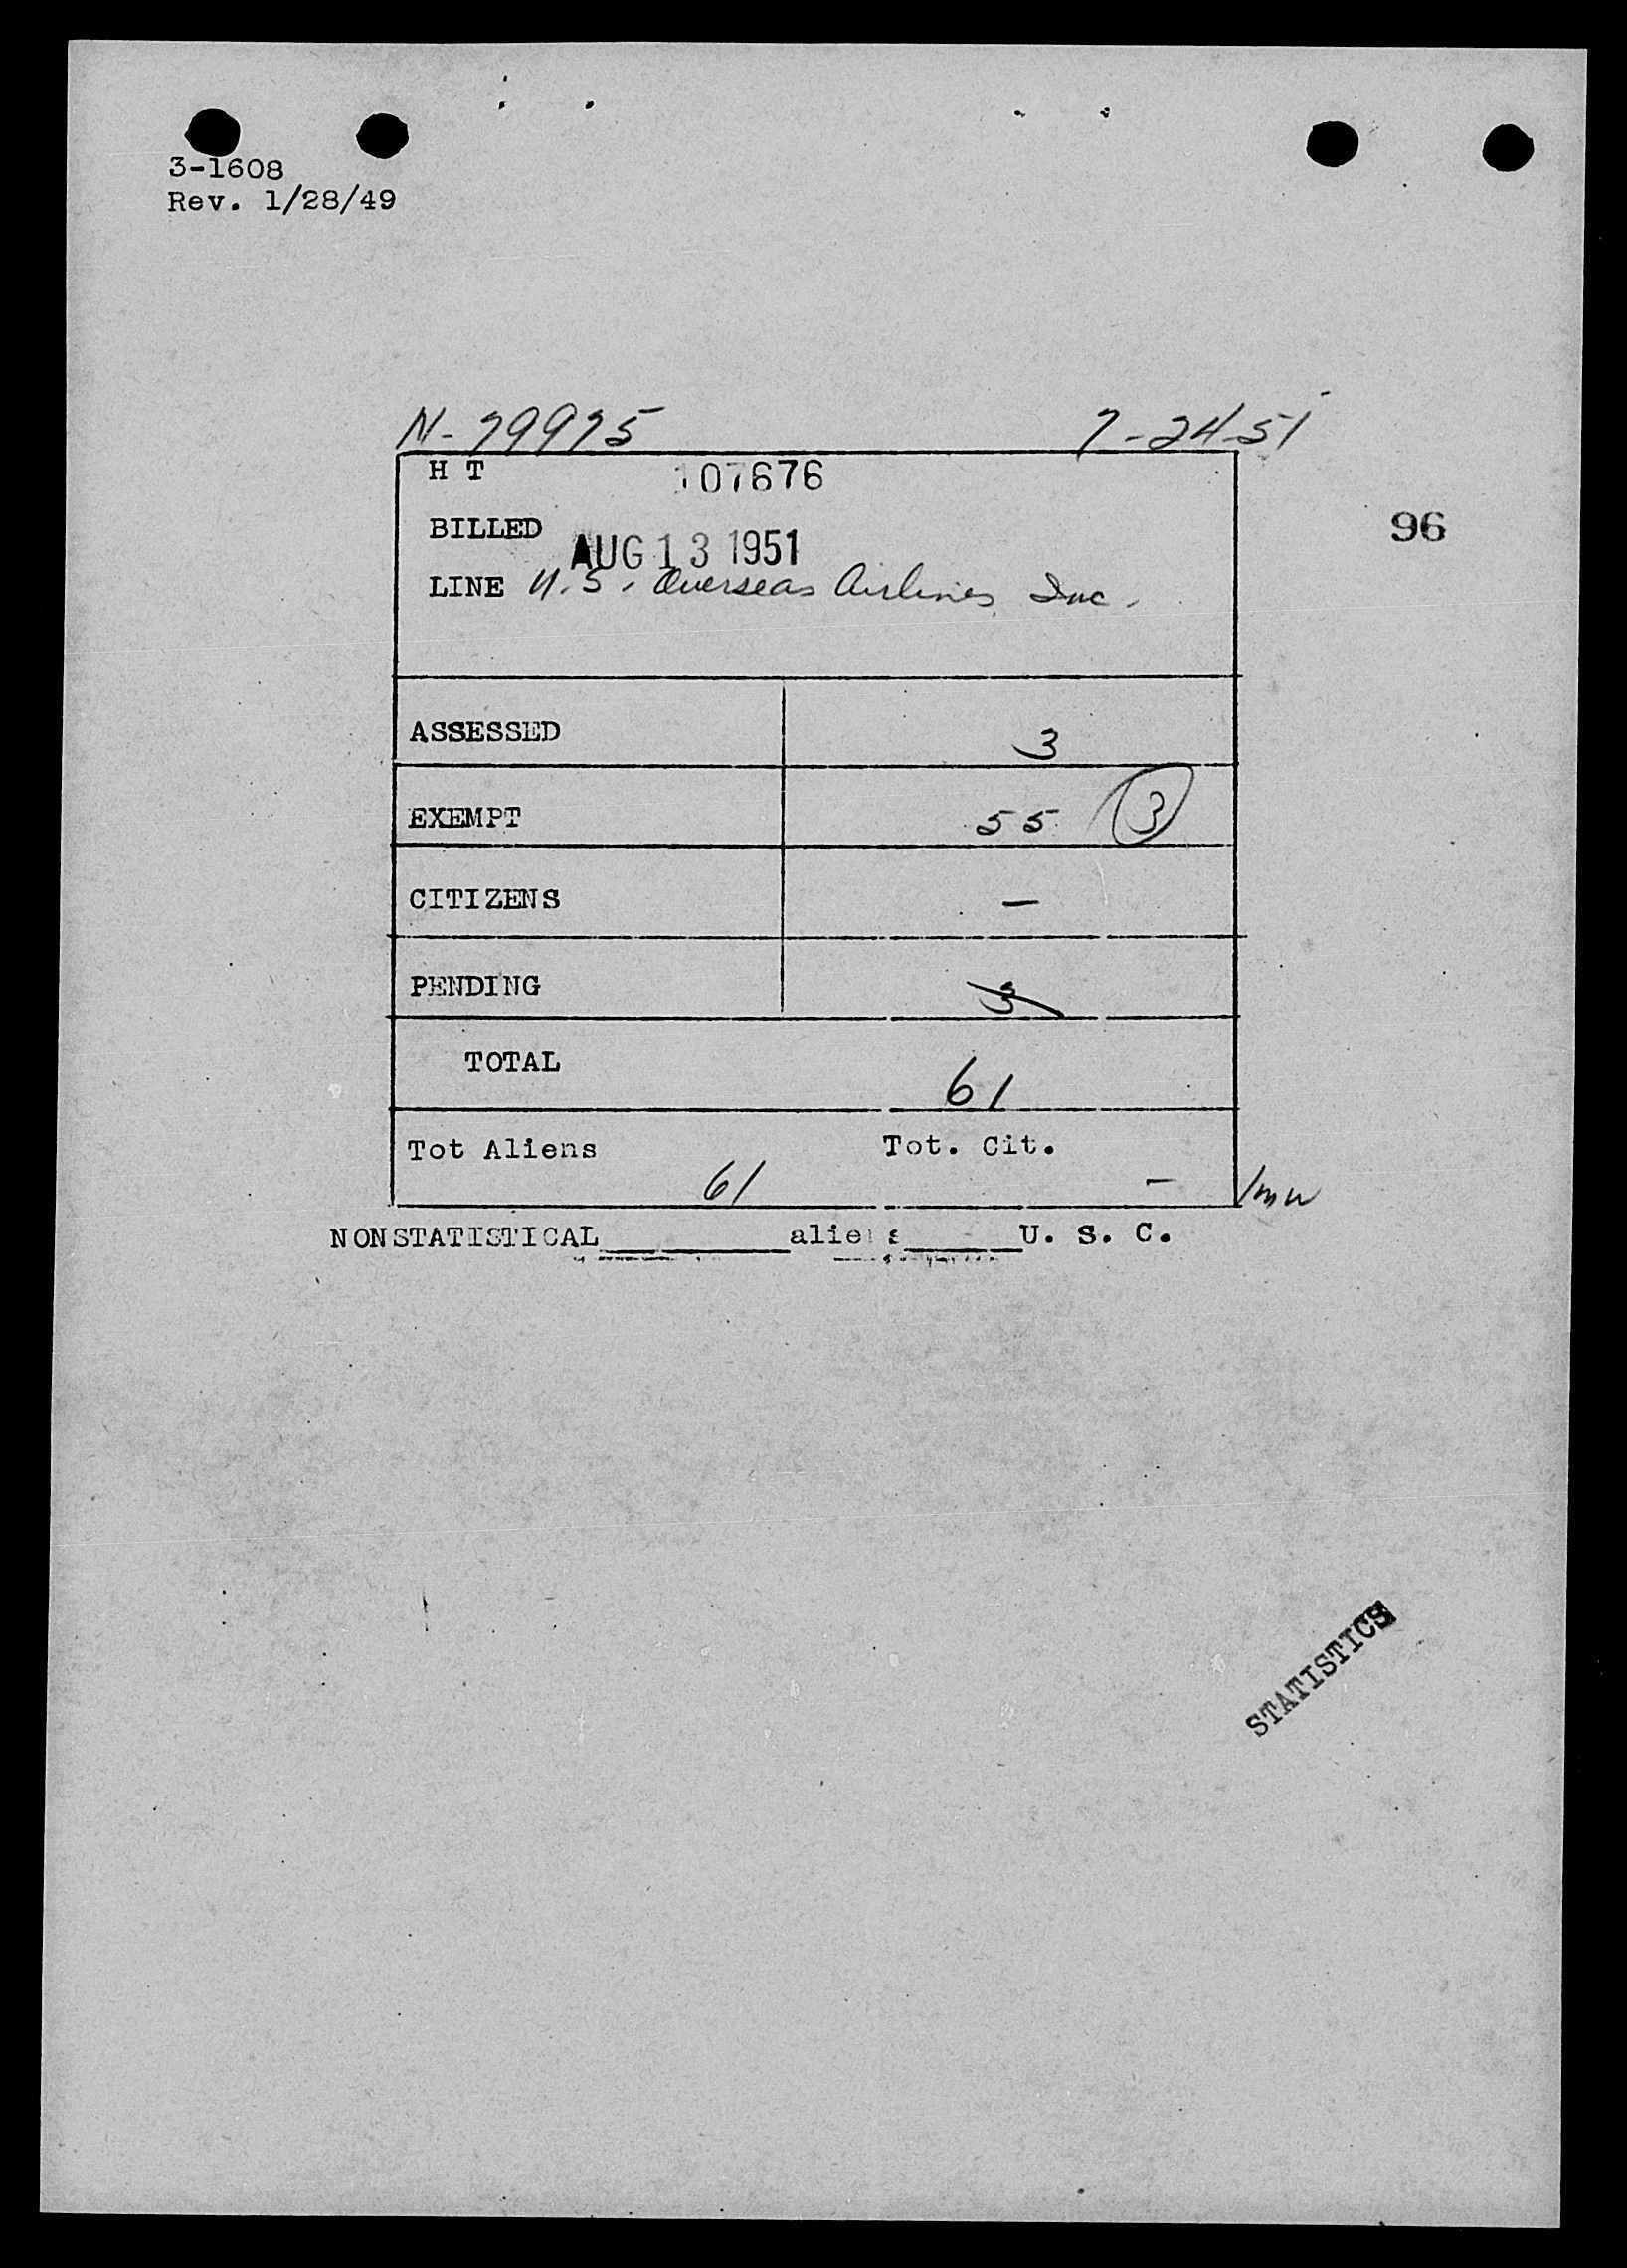 3-1608
Rev. 1/28/49
N-79975 7-24-51
H T 107676
96
BILLED AUG 13 1951
LINE U.S. Overseas Airlines, Inc.
ASSESSED 3
EXEMPT 55 3
CITIZENS —
PENDING 3
TOTAL 61
Tot Aliens 61 Tot. Cit. —
NONSTATISTICAL aliens U. S. C.
STATISTICS